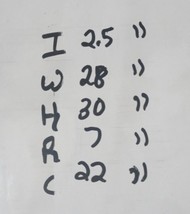 I 2.5 "
W 28 "
H 30 "
R 7 "
C 22 "